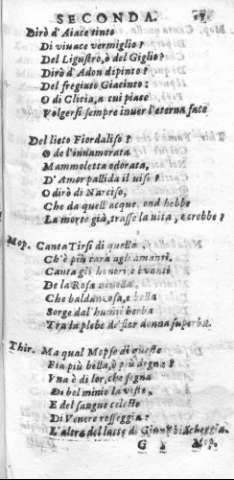 SECONDA.
Dirò d'Aiace tinto
Di viuace vermiglio?
Del Ligustro, ò del Giglio?
Dirò d'Adon dipinto?
Del fregiato Giacinto:
O di Clitia, a cui piace
Volgersi sempre inuer l'eterna face
Del lieto Fiordaliso?
O de l'innamorata
Mammoletta odorata,
D'Amor pallida il uiso?
O dirò di Narciso,
Che da quell'acque, ond'hebbe
La morte già, trasse la uita, e crebbe?
Mop. Canta Tirsi di quella,
Ch'è più cara agli amanti,
Canta gli honori e i vanti
De la Rosa nouella,
Che baldanzosa, e bella
Sorge dal humil herba
Tra la plebe de' fior donna superba.
Thir. Ma qual Mopso di queste
Fia più bella, ò più degna?
Vna è di lor, che segna
Di bel minio la veste,
E del sangue celeste
Di Venere rosseggia:
L'altra del latte di Giunon biancheggia.
G Mop.